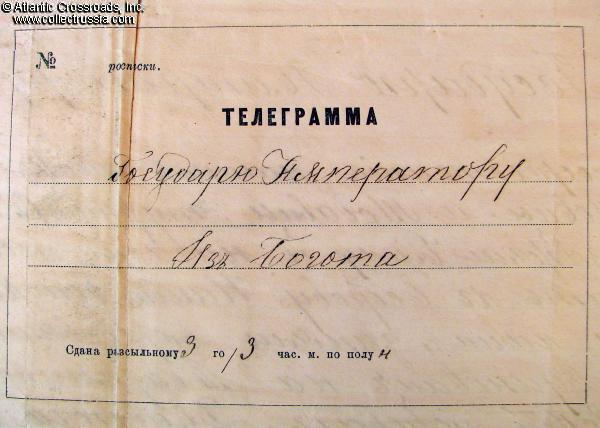 © Atlantic Crossroads, Inc.
www.collectrussia.com
№ росписки.
ТЕЛЕГРАММА
Государю Императору
Изъ Богота
Сдана разсыльному 3 го / 3 час. м. по полу н